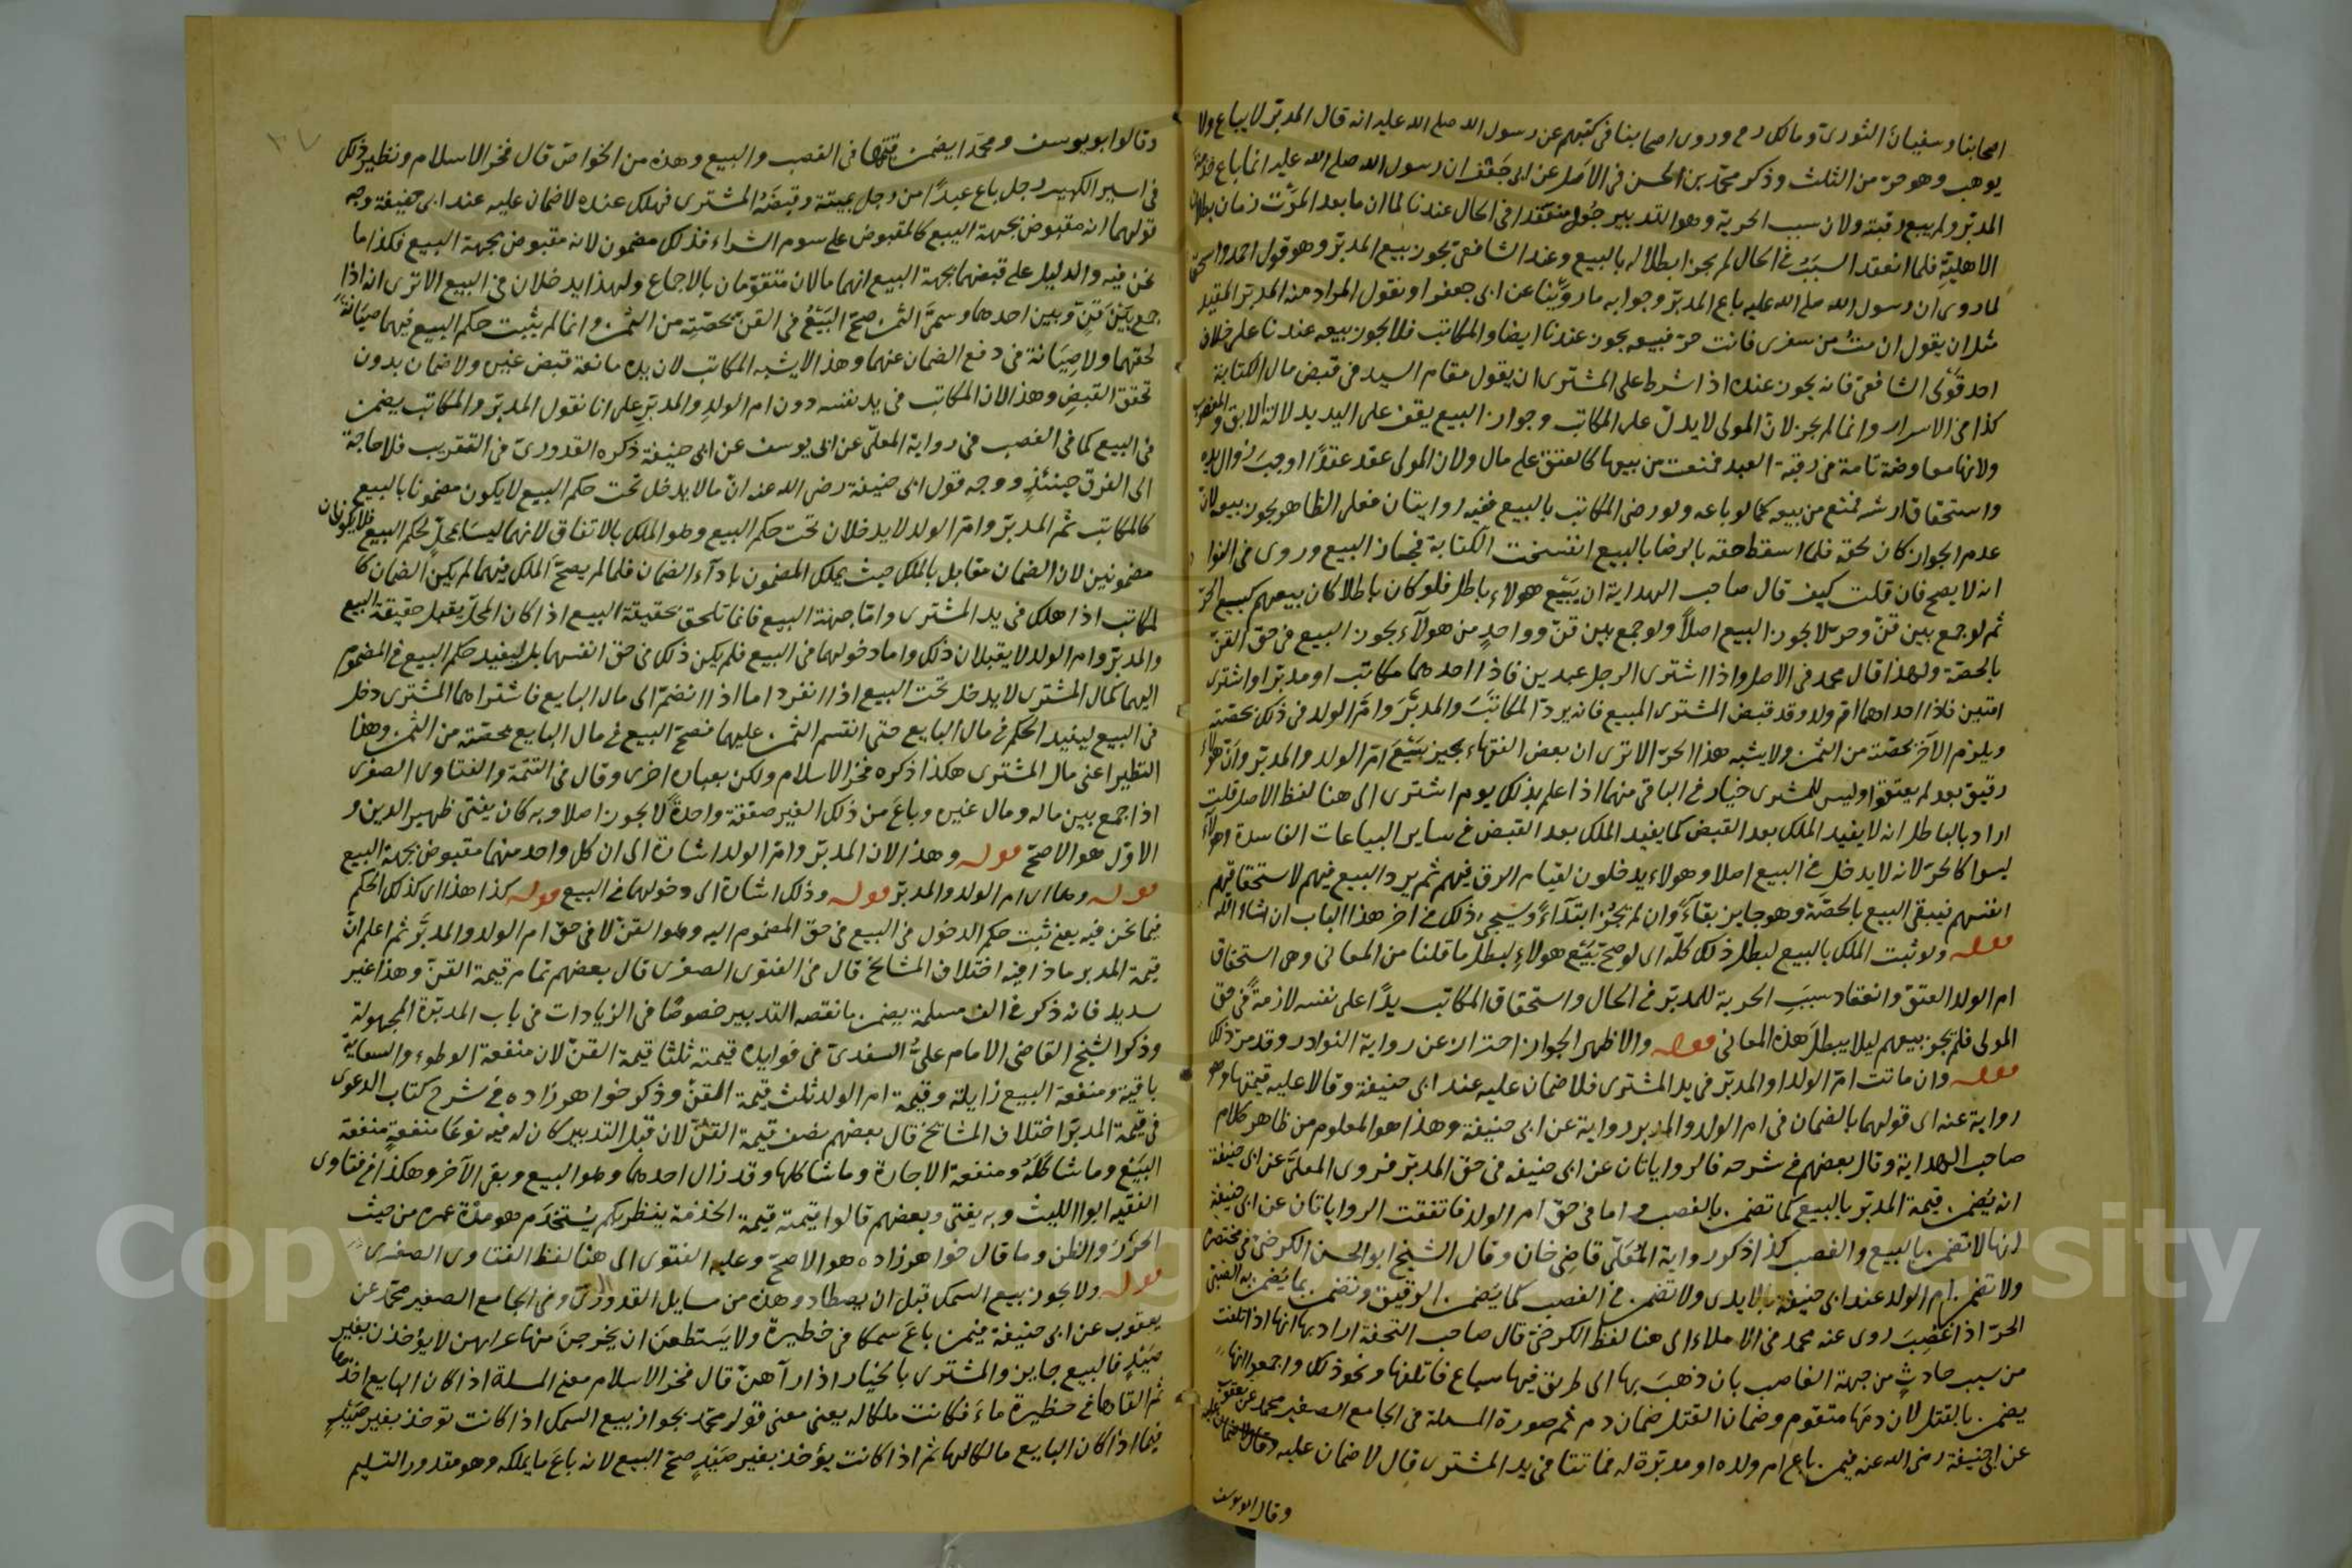 اصحابنا وسفيان الثوري ومالك رح وروى اصحابنا في كتبهم عن رسول الله صلى الله عليه انه قال المدبر لا يباع ولا
يوهب وهو حر من الثلث وذكر محمد بن الحسن في الاصل عن ابي جعفر ان رسول الله صلى الله عليه انما باع خدمة
المدبر ولم يبع رقبته ولان سبب الحرية وهو التدبير جعل منعقدا في الحال عندنا لما ان ما بعد الموت زمان بطلان
الاهلية فلما انعقد السبب في الحال لم يجز ابطاله بالبيع وعند الشافعي يجوز بيع المدبر وهو قول احمد واسحق
لما روى ان رسول الله صلى الله عليه باع المدبر وجوابه ما روينا عن ابي جعفر او نقول المراد منه المدبر المقيد
مثل ان يقول ان مت من سفرى فانت حر فبيعه يجوز عندنا ايضا والمكاتب فلا يجوز بيعه عندنا على خلاف
احد قولى الشافعي فانه يجوز عنده اذا شرط على المشترى ان يقول مقام السيد في قبض مال الكتابة
كذا في الاسرار وانما لم يجز لان المولى لا يد له على المكاتب وجواز البيع يقف على اليد بدلالة الابق والمغصوب
ولانها معاوضة تامة في رقبة العبد فمنعت من بيعها كالعتق على مال ولان المولى عقد عقدا اوجب زوال يده
واستحقاق ارشه فمنع من بيعه كما لو باعه ولو رضى المكاتب بالبيع ففيه روايتان فعلى الظاهر يجوز بيعه لان
عدم الجواز كان لحقه فلما اسقط حقه بالرضا بالبيع انفسخت الكتابة فجاز البيع وروى في النوادر
انه لا يصح فان قلت كيف قال صاحب الهداية ان بيع هولاء باطل فلو كان باطلا كان بيعهم كبيع الحر
ثم لو جمع بين قن وحر لا يجوز البيع اصلا ولو جمع بين قن وواحد من هولاء يجوز البيع في حق القن
بالحصة ولهذا قال محمد في الاصل واذا اشترى الرجل عبدين فاذا احدهما مكاتب او مدبر او اشترى
امتين فاذا احداهما ام ولد وقد قبض المشترى المبيع فانه يرد المكاتب والمدبر وام الولد في ذلك بحصته
ويلزم الآخر بحصته من الثمن ولا يشبه هذا الحر الا ترى ان بعض الفقهاء يجيز بيع ام الولد والمدبر وان هولاء
رقيق بعد لم يعتقوا وليس للمشترى خيار في الباقي منهما اذا علم بذلك يوم اشترى الى هنا لفظ الاصل قلت
اراد بالباطل انه لا يفيد الملك بعد القبض كما يفيد الملك بعد القبض في ساير البياعات الفاسدة وهولاء
ليسوا كالحر لانه لا يدخل في البيع اصلا وهولاء يدخلون لقيام الرق فيهم ثم يرد البيع فيهم لاستحقاقهم
انفسهم فيبقى البيع بالحصة وهو جايز بقاء وان لم يجز ابتداء وسيجيء ذلك في اخر هذا الباب ان شاء الله
قوله ولو ثبت الملك بالبيع لبطل ذلك كله اى لو صح بيع هولاء لبطل ما قلنا من المعانى وهى استحقاق
ام الولد العتق وانعقاد سبب الحرية للمدبر في الحال واستحقاق المكاتب يدا على نفسه لازمة في حق
المولى فلم يجز بيعهم ليلا يبطل هذه المعانى قوله والاظهر الجواز احتراز عن رواية النوادر وقد مر ذلك
قوله وان ماتت ام الولد او المدبر في يد المشترى فلا ضمان عليه عند ابي حنيفة وقالا عليه قيمتهما وهو
رواية عنه اى قولهما بالضمان في ام الولد والمدبر رواية عن ابي حنيفة وهذا هو المعلوم من ظاهر كلام
صاحب الهداية وقال بعضهم في شرحه فالروايتان عن ابي حنيفه في حق المدبر فروى المعلى عن ابي حنيفة
انه يضمن قيمة المدبر بالبيع كما تضمن بالغصب واما في حق ام الولد فاتفقت الروايتان عن ابي حنيفة
انها لا تضمن بالبيع والغصب كذا ذكر رواية المعلى قاضى خان وقال الشيخ ابو الحسن الكرخي في مختصره
ولا تضمن ام الولد عند ابي حنيفة بالايدى ولا تضمن في الغصب كما يضمن الرقيق وتضمن بما يضمن به الصبي
الحر اذا غصب روى عنه محمد في الاملاء الى هنا لفظ الكرخي قال صاحب التحفة اراد بها انها اذا تلفت
من سبب حادث من جهة الغاصب بان ذهب بها الى طريق فيها سباع فاتلفها ونحو ذلك واجمعوا انها
يضمن بالقتل لان دمها متقوم وضمان القتل ضمان دم ثم صورة المسلة في الجامع الصغير محمد عن يعقوب
عن ابي حنيفة رضى الله عنه فيمن باع ام ولده او مدبرة له فماتتا في يد المشترى قال لا ضمان عليه
وقال ابو يوسف
وقالوا ابو يوسف ومحمد ايضمن قيمتهما في الغصب والبيع وهذه من الخواص قال فخر الاسلام ونظير ذلك
في السير الكبير رجل باع عبدا من رجل بميتة وقبضه المشترى فهلك عنده لا ضمان عليه عند ابي حنيفة وجه
قولهما انه مقبوض بجهة البيع كالمقبوض على سوم الشراء فذلك مضمون لانه مقبوض بجهة البيع فكذا ما
نحن فيه والدليل على قبضهما بجهة البيع انهما مالان متقومان بالاجماع ولهذا يدخلان في البيع الا ترى انه اذا
جمع بين قن وبين احدهما وسمى الثمن صح البيع في القن بحصته من الثمن وانما لم يثبت حكم البيع فيهما صيانة
لحقهما ولا صيانة في دفع الضمان عنهما وهذا لا يشبه المكاتب لان يده مانعة قبض غيره ولا ضمان بدون
تحقق القبض وهذا لان المكاتب في يد نفسه دون ام الولد والمدبر على انا نقول المدبر والمكاتب يضمن
في البيع كما في الغصب في رواية المعلى عن ابي يوسف عن ابي حنيفة ذكره القدورى في التقريب فلا حاجة
الى الفرق حينئذ ووجه قول ابي حنيفة رضى الله عنه ان مالا يدخل تحت حكم البيع لا يكون مضمونا بالبيع
كالمكاتب ثم المدبر وام الولد لا يدخلان تحت حكم البيع وهو الملك بالاتفاق لانهما ليسا بمحل لحكم البيع فلا يكونان
مضمونين لان الضمان مقابل بالملك حيث يملك المضمون باداء الضمان فلما لم يصح الملك فيهما لم يكن الضمان كا
لمكاتب اذا هلك في يد المشترى واما جهة البيع فانما تلحق بحقيقة البيع اذا كان المحل يقبل حقيقة البيع
والمدبر وام الولد لا يقبلان ذلك واما دخولهما في البيع فلم يكن ذلك في حق انفسهما بل ليفيد حكم البيع في المضموم
اليهما كمال المشترى لا يدخل تحت البيع اذا انفرد اما اذا انضم الى مال البايع فاشتراهما المشترى دخل
في البيع ليفيد الحكم في مال البايع حتى انقسم الثمن عليهما فصح البيع في مال البايع بحصته من الثمن وهذا
النظير اعنى مال المشترى هكذا ذكره فخر الاسلام ولكن بعبارة اخرى وقال في التتمة والفتاوى الصغرى
اذا جمع بين ماله ومال غيره وباع من ذلك الغير صفقة واحدة لا يجوز اصلا وبه كان يفتى ظهير الدين و
الاول هو الاصح قوله وهذا لان المدبر وام الولد اشارة الى ان كل واحد منهما مقبوض بجهة البيع
قوله وهما اى ام الولد والمدبر قوله وذلك اشارة الى دخولهما في البيع قوله كذا هذا اى كذلك الحكم
فيما نحن فيه يعنى ثبت حكم الدخول في البيع في حق المضموم اليه وهو القن لا في حق ام الولد والمدبر ثم اعلم ان
قيمة المدبر ماذا فيه اختلاف المشايخ قال في الفتوى الصغرى قال بعضهم تمام قيمة القن وهذا غير
سديد فانه ذكر في الف مسلمة يضمن ما نقصه التدبير خصوصا في الزيادات في باب المدبرة المجهولة
وذكر الشيخ القاضي الامام على السغدى في فوايده قيمته ثلثا قيمة القن لان منفعة الوطوء والسعاية
باقية ومنفعة البيع زايلة وقيمة ام الولد ثلث قيمة القن وذكر خواهر زاده في شرح كتاب الدعوى
في قيمة المدبر اختلاف المشايخ قال بعضهم نصف قيمة القن لان قبل التدبير كان له فيه نوعا منفعة منفعة
البيع وما شاكله ومنفعة الاجارة وما شاكلها وقد زال احدهما وهو البيع وبقى الآخر وهكذا في فتاوى
الفقيه ابو الليث وبه يفتى وبعضهم قالوا قيمته قيمة الخدمة ينظر بكم يستخدم هو مدة عمره من حيث
الحزر والظن وما قال خواهر زاده هو الاصح وعليه الفتوى الى هنا لفظ الفتاوى الصغرى
قوله ولا يجوز بيع السمك قبل ان يصطاد وهذه من مسايل القدورى وفي الجامع الصغير محمد عن
يعقوب عن ابي حنيفة فيمن باع سمكا في حظيرة ولا يستطعن ان يخرجن منها لا يؤخذن بغير
صيد فالبيع جايز والمشترى بالخيار اذا رآهن قال فخر الاسلام معنى المسلة اذا كان البايع اخذها
ثم القاها في حظيرة ماء فكانت ملكا له يعنى معنى قول محمد بجواز بيع السمك اذا كانت توخذ بغير صيد
فيما اذا كان البايع مالكا لها ثم اذا كانت يؤخذ بغير صيد صح البيع لانه باع ما يملكه وهو مقدور التسليم
Copyright © King Saud University